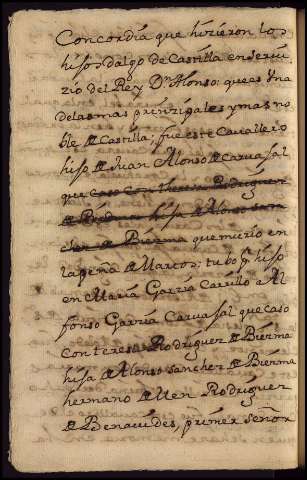 Concordia que hizieron los
hijos dalgo de Castilla en serui
zio del Rey Dn Alonso: que es Vna
de las mas prinzipales y mas no
ble de Castilla; fue este Cauallero
hijo de Juan Alonso de Caruajal
que caso con theresa Rodriguez
de Biedma hija de Alonso san
chez de Biezma que murio en
la peña de Martos; tubo por hijo
en Maria Garzia Carrillo a Al
fonso Garzia Caruajal que caso
con teresa Rodriguez de Biezma
hija de Alonso sanchez de Biezma
hermano de Men Rodriguez
de Benauides, primer señor